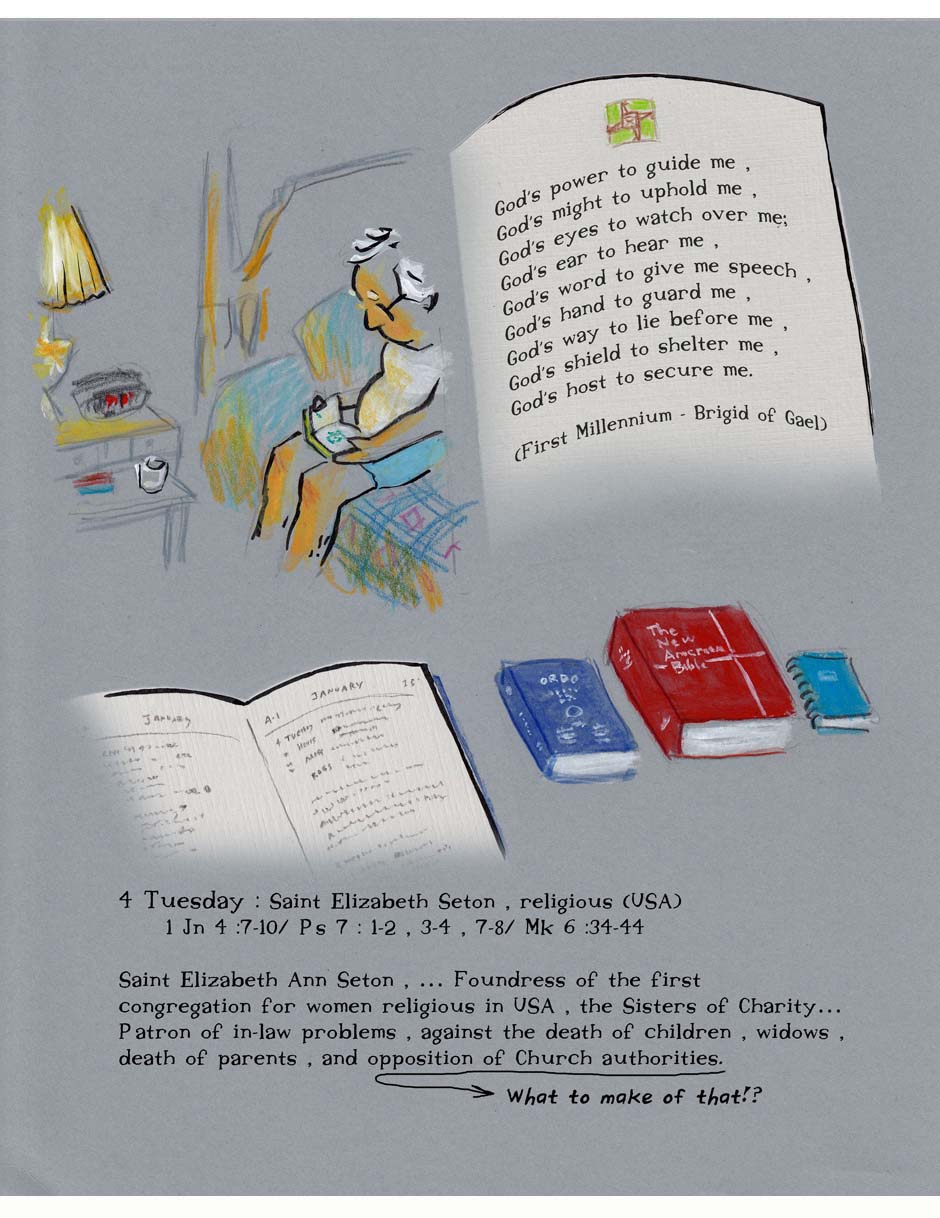 God's power to guide me ,
God's might to uphold me ,
God's eyes to watch over me;
God's ear to hear me ,
God's word to give me speech ,
God's hand to guard me ,
God's way to lie before me ,
God's shield to shelter me ,
God's host to secure me.
(First Millennium - Brigid of Gael)
ORDO
The
New
Bible
JANUARY
JANUARY
A-1
4 TUESDAY
4 Tuesday : Saint Elizabeth Seton , religious (USA)
1 Jn 4 :7-10/ Ps 7 : 1-2 , 3-4 , 7-8/ Mk 6 :34-44
Saint Elizabeth Ann Seton , ... Foundress of the first
congregation for women religious in USA , the Sisters of Charity...
Patron of in-law problems , against the death of children , widows ,
death of parents , and opposition of Church authorities.
What to make of that!?